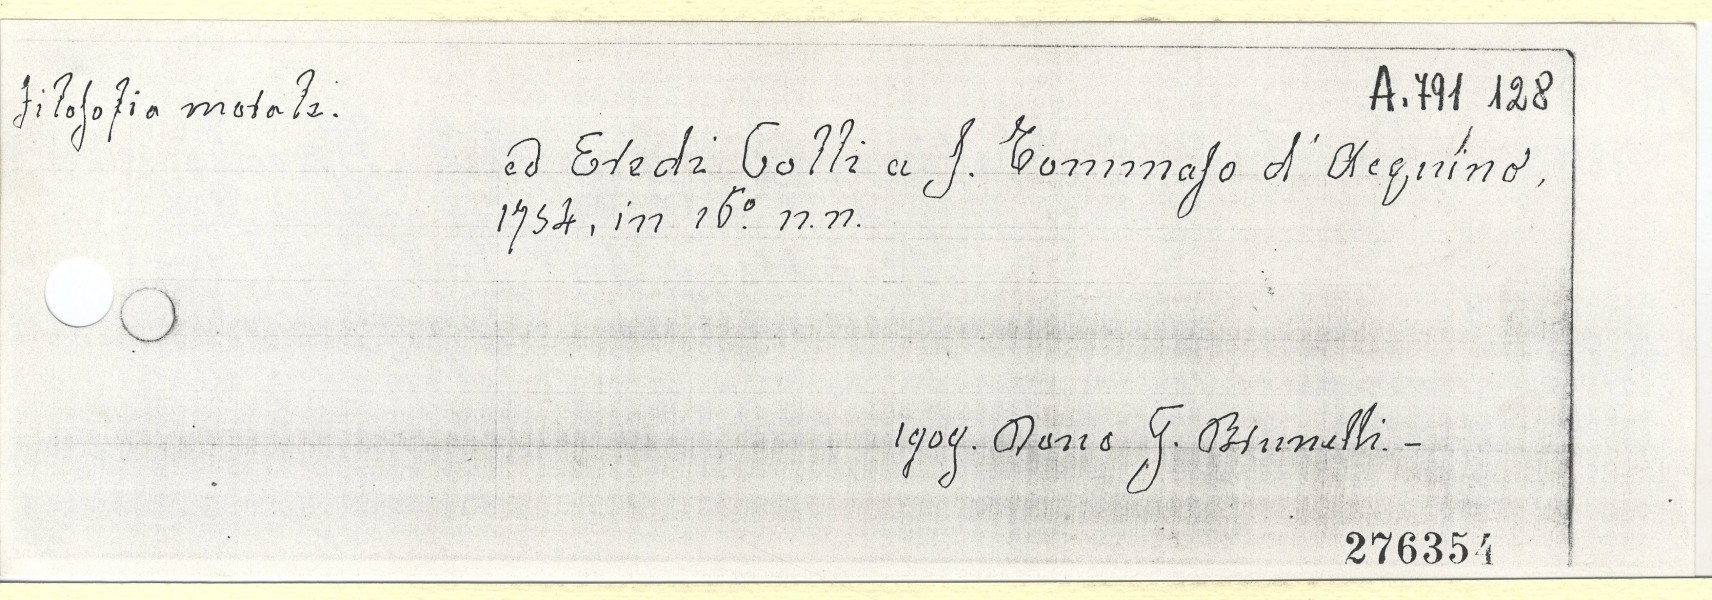 Filosofia morale.
A.791 128
ed Eredi Colli a S. Tommaso d'Acquino,
1754, in 16º. n.n.
1909. Dono G. Brunelli.-
276354